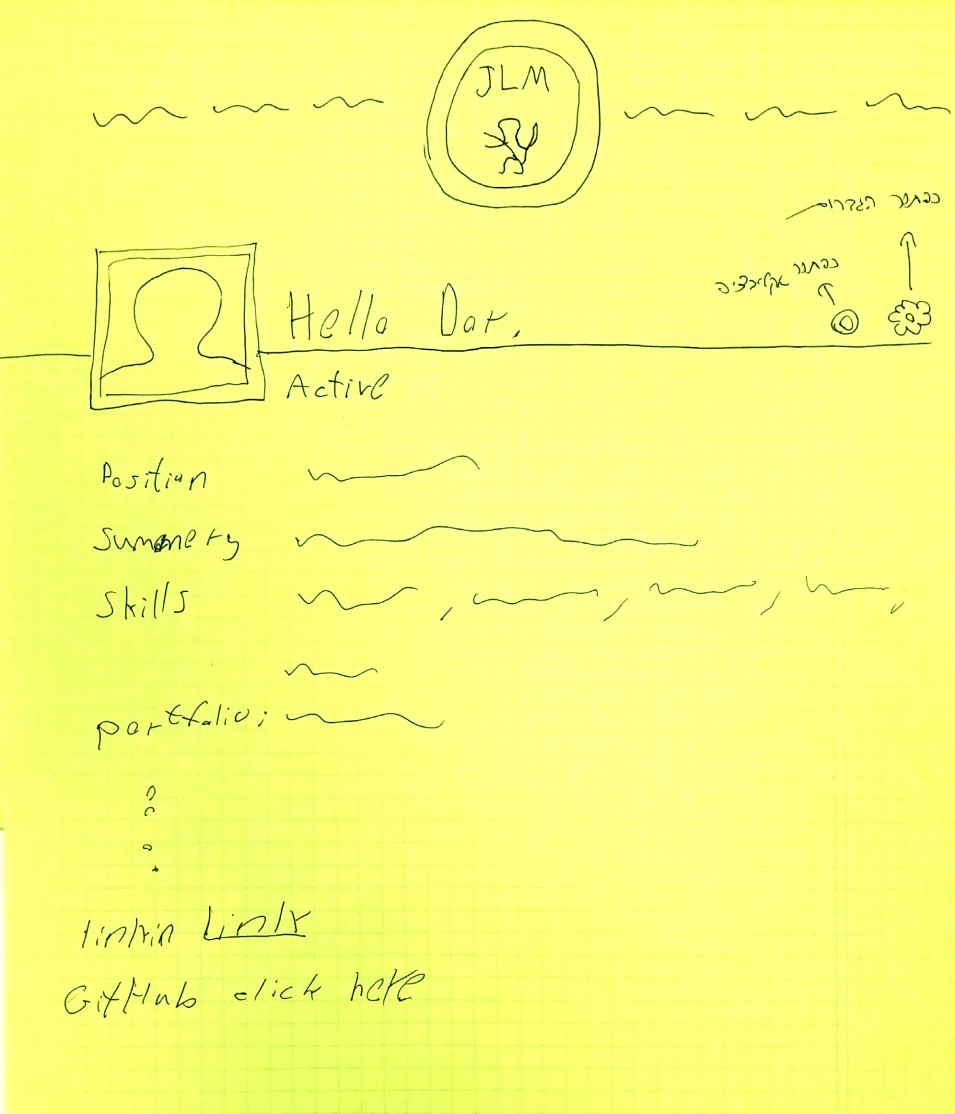 JLM
כפתור הגדרות
כפתור
Hello Dar.
Active
Position
Summery
Skills
portfalio:
linkin Link
GitHub click here